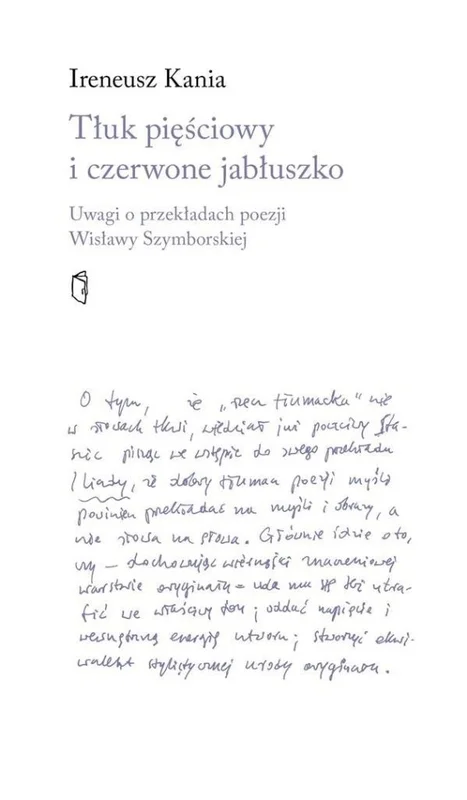 Ireneusz Kania
Tłuk pięściowy
i czerwone jabłuszko
Uwagi o przekładach poezji
Wisławy Szymborskiej
O tym, że „rzecz tłumacka” nie
w słowach tkwi, wiedział już poczciwy Sta-
szic pisząc we wstępie do swego przekładu
Iliady, iż dobry tłumacz poezji myśli
powinien przekładać na myśli i obrazy, a
nie słowa na słowa. Głównie idzie o to,
czy – dochowując wierności znaczeniowej
warstwie oryginału – uda mu się utra-
fić we właściwy ton; oddać napięcie i
wewnętrzną energię utworu; stworzyć ekwi-
walent stylistycznej urody oryginału.